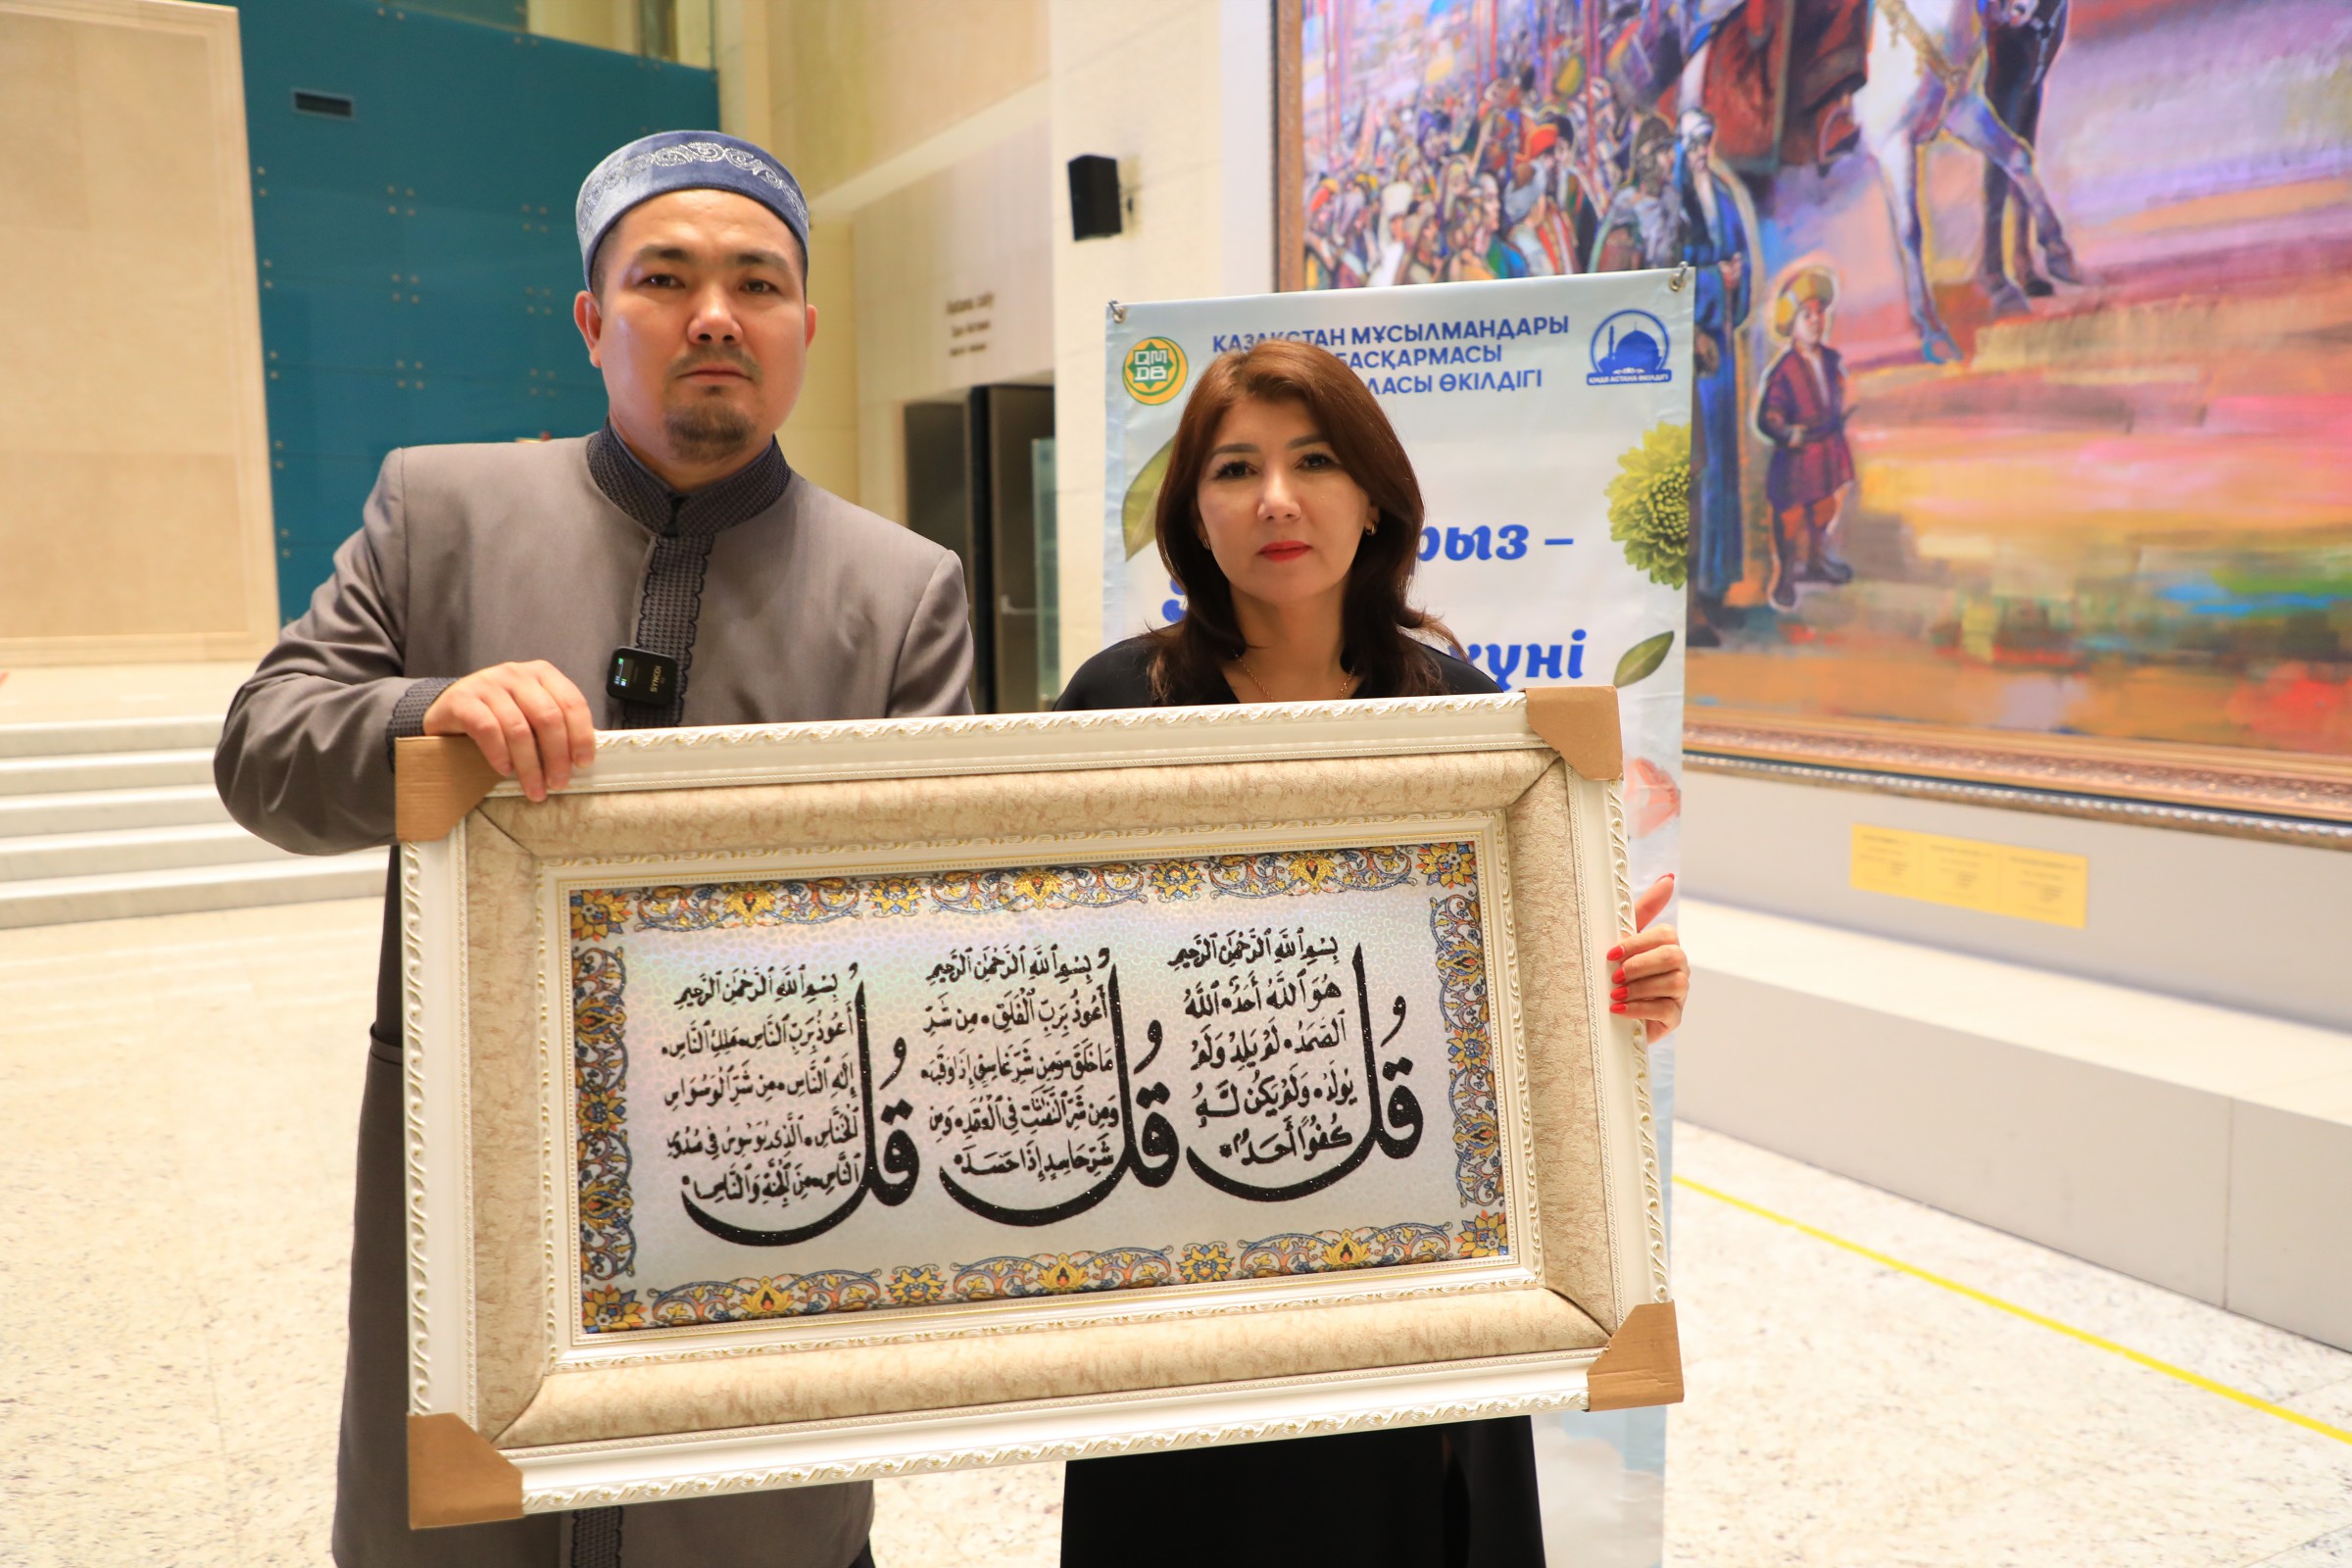 ҚАЗАҚСТАН МҰСЫЛМАНДАРЫ
БАСҚАРМАСЫ
ЛАСЫ ӨКІЛДІГІ
QM
DB
ҚМДБ АСТАНА ӨКІЛДІГІ
рыз –
күні
بِسْمِ ٱللَّهِ ٱلرَّحْمَٰنِ ٱلرَّحِيمِ
قُلْ هُوَ ٱللَّهُ أَحَدٌ ٱللَّهُ
ٱلصَّمَدُ لَمْ يَلِدْ وَلَمْ
يُولَدْ وَلَمْ يَكُن لَّهُ
كُفُوًا أَحَدٌ
بِسْمِ ٱللَّهِ ٱلرَّحْمَٰنِ ٱلرَّحِيمِ
قُلْ أَعُوذُ بِرَبِّ ٱلْفَلَقِ مِن شَرِّ
مَا خَلَقَ وَمِن شَرِّ غَاسِقٍ إِذَا وَقَبَ
وَمِن شَرِّ ٱلنَّفَّٰثَٰتِ فِي ٱلْعُقَدِ وَمِن
شَرِّ حَاسِدٍ إِذَا حَسَدَ
بِسْمِ ٱللَّهِ ٱلرَّحْمَٰنِ ٱلرَّحِيمِ
قُلْ أَعُوذُ بِرَبِّ ٱلنَّاسِ مَلِكِ ٱلنَّاسِ
إِلَٰهِ ٱلنَّاسِ مِن شَرِّ ٱلْوَسْوَاسِ
ٱلْخَنَّاسِ ٱلَّذِي يُوَسْوِسُ فِي صُدُورِ
ٱلنَّاسِ مِنَ ٱلْجِنَّةِ وَٱلنَّاسِ